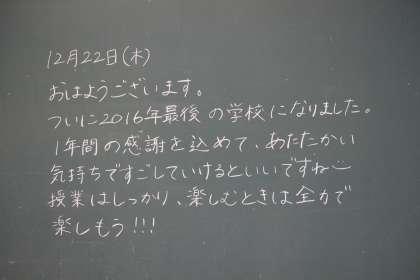 12月22日(木)
おはようございます。
ついに2016年最後の学校になりました。
1年間の感謝を込めて、あたたかい
気持ちですごしていけるといいですね
授業はしっかり、楽しむときは全力で
楽しもう!!!